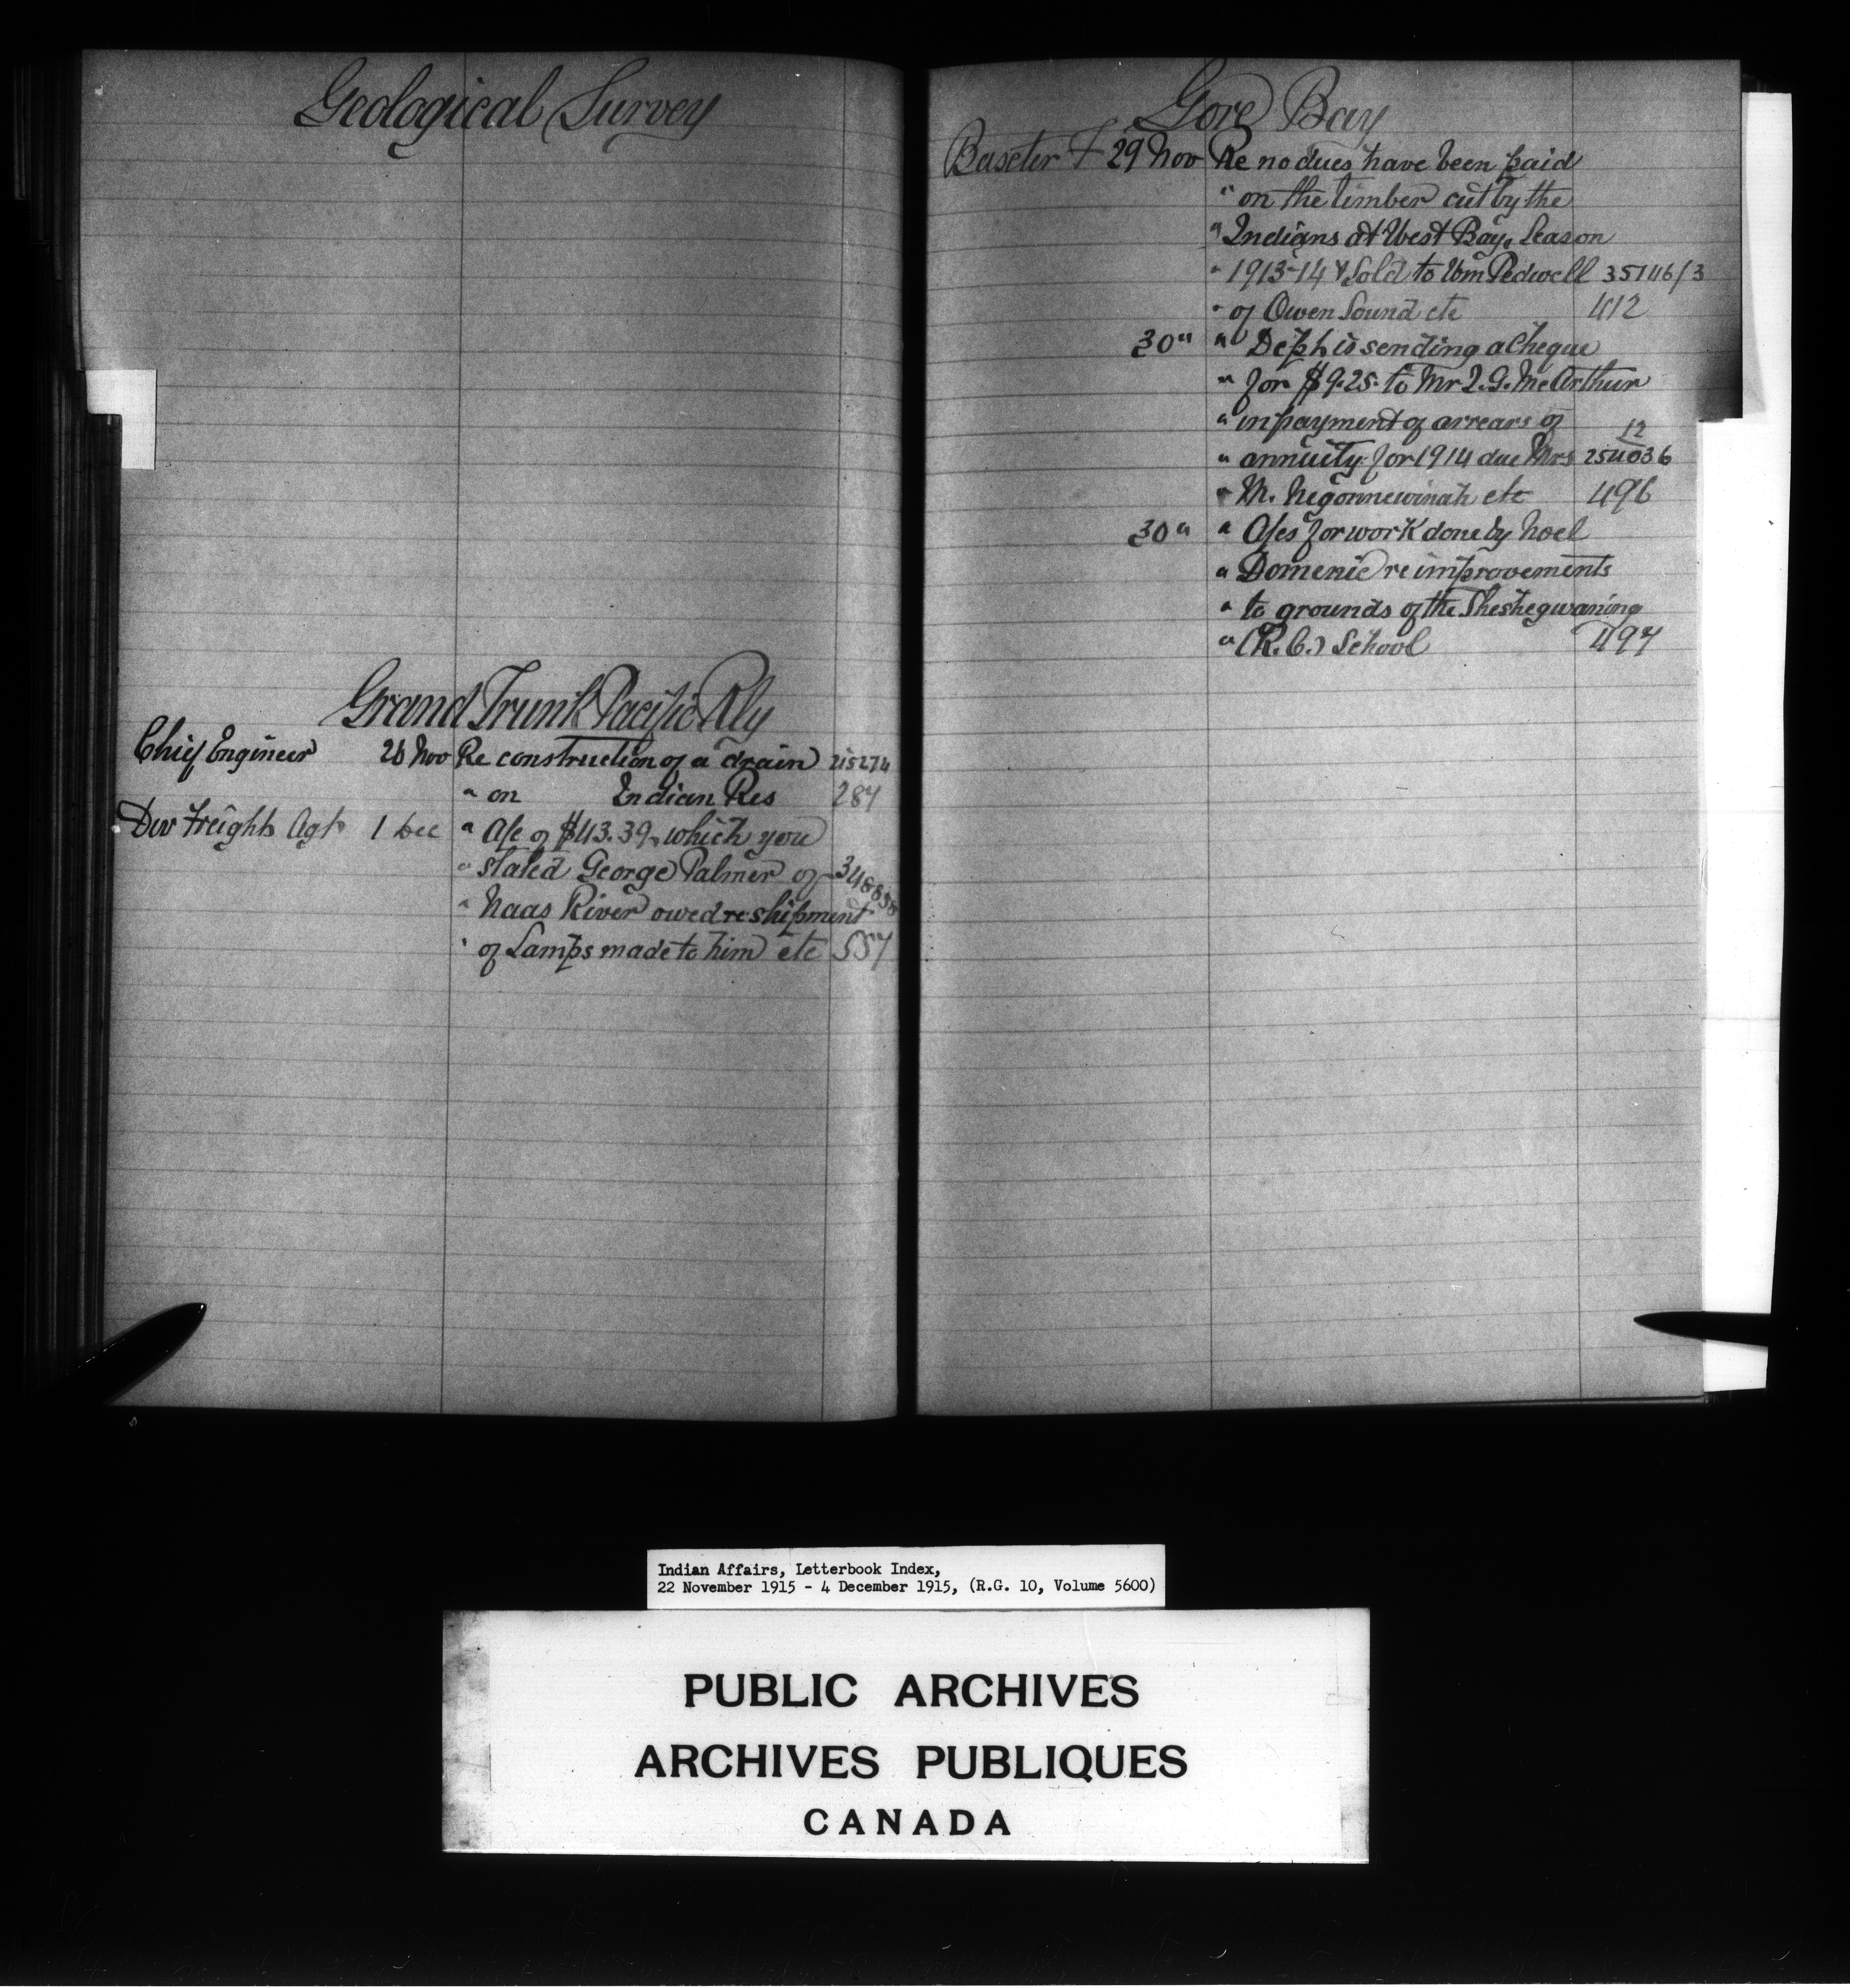 Geological Survey
Grand Trunk Pacific Rly
Chief Engineer 26 Nov Re construction of a drain 215274
" on Indian Res 287
Div Freight Agt 1 Dec " A/c of $43.39 which you
" stated George Palmer of 348838
" Naas River owed re shipment
" of Lamps made to him etc 557
Gore Bay
Baxter F 29 Nov Re no dues have been paid
" on the timber cut by the
" Indians at West Bay, Season
" 1913-14 & Sold to Wm Pedwell 35146/3
" of Owen Sound etc 412
30 " " Dept is sending a Cheque
" for $9.25 to Mr I. G. McArthur
" in payment of arrears of 12
" annuity for 1914 due Mrs 254036
" M. Negonnewinah etc 496
30 " " A/cs for work done by Noel
" Domenic re improvements
" to grounds of the Sheshegwaning
" (R. C.) School 497
Indian Affairs, Letterbook Index,
22 November 1915 - 4 December 1915, (R.G. 10, Volume 5600)
PUBLIC ARCHIVES
ARCHIVES PUBLIQUES
CANADA